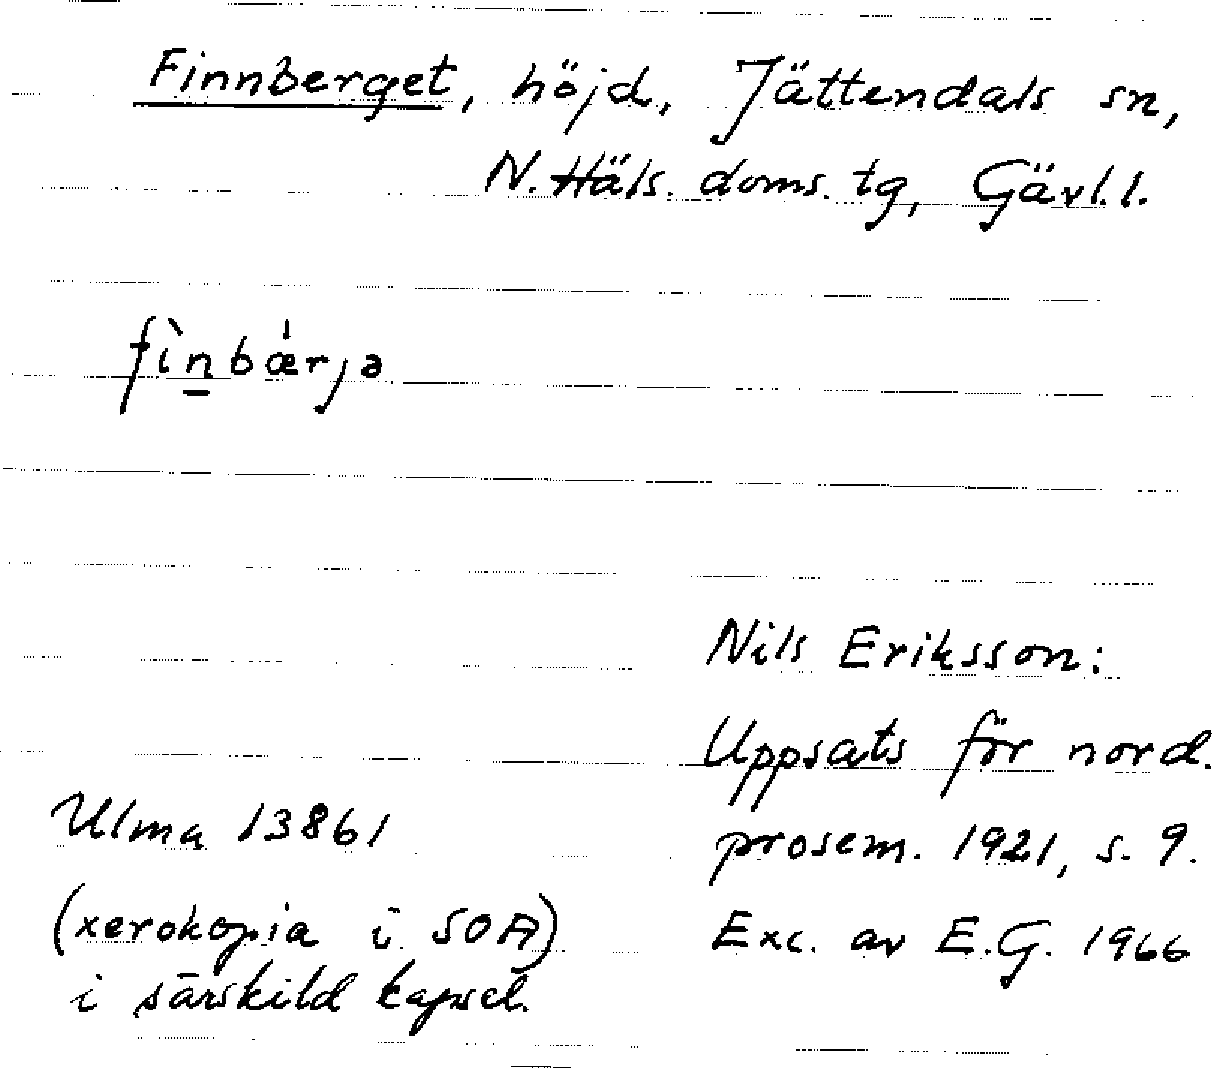 Finnberget, höjd, Jättendals sn,
N. Häls. doms. tg, Gävl. l.
fìn̲bǽrjə
Nils Eriksson:
Uppsats för nord.
prosem. 1921, s. 9.
Exc. av E.G. 1966
Ulma 13861
(xerokopia i SOA)
i särskild kapsel.